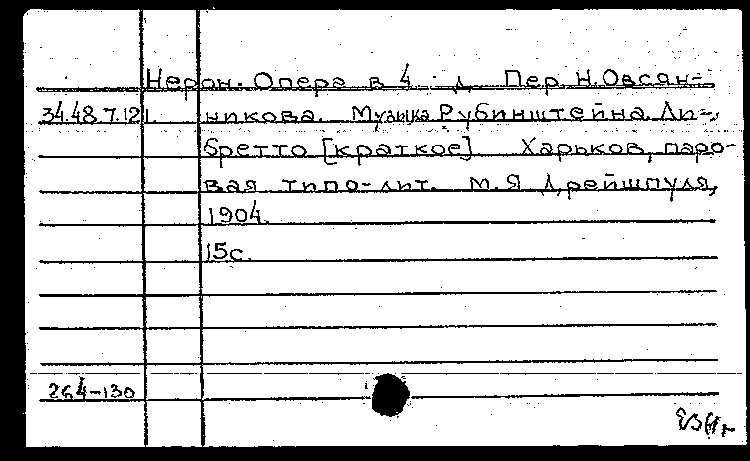 Нерон. Опера в 4 д. Пер. Н. Овсян-
34.48.7.121. никова. Музыка Рубинштейна. Ли-
бретто [краткое]. Харьков, паро-
вая типо-лит. М.Я. Дрейшпуля,
1904.
15с.
264-130